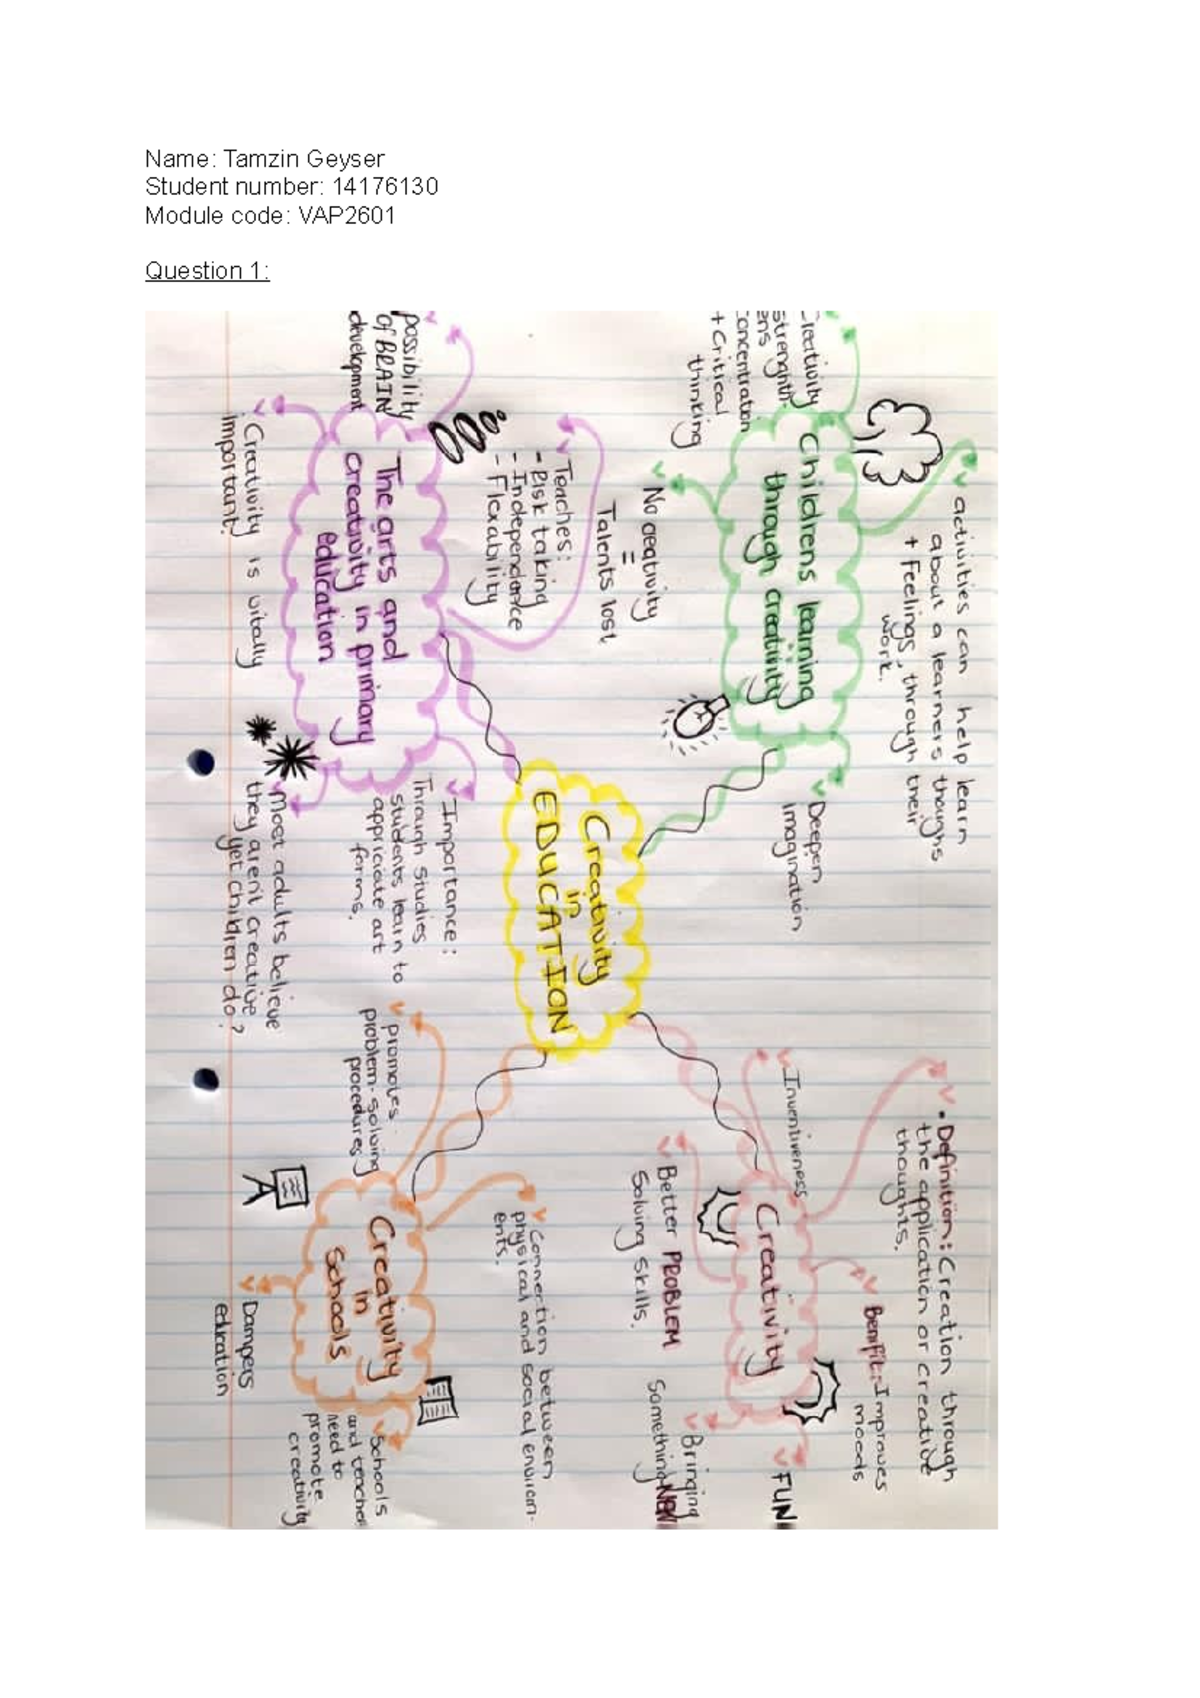 Name: Tamzin Geyser
Student number: 14176130
Module code: VAP2601
Question 1:
Creativity
in
EDUCATION
Childrens learning
through creativity
activities can help learn
about a learners thoughs
+ Feelings, through their
work.
Creativity
strenghth-
ens
concentration
+ Critical
thinking
No creativity
=
Talents lost
Deepen
imagination
Creativity
• Definition: Creation through
the application or creative
thoughts.
Inventiveness
Benifit: Improves
moods
FUN
Better PROBLEM
Solving Skills.
Bringing
Something NEW
The arts and
creativity in primary
education
possibility
of BRAIN
development
Teaches:
- Risk taking
- Independence
- Flexability
Creativity is vitally
important.
Importance:
Through studies
students learn to
appriciate art
forms.
most adults believe
they aren't creative
yet children do?
Creativity
in
Schools
promotes
problem-solving
procedures
Connection between
physical and social environ-
ents.
Dampers
education
Schools
and teacher
need to
promote
creativity